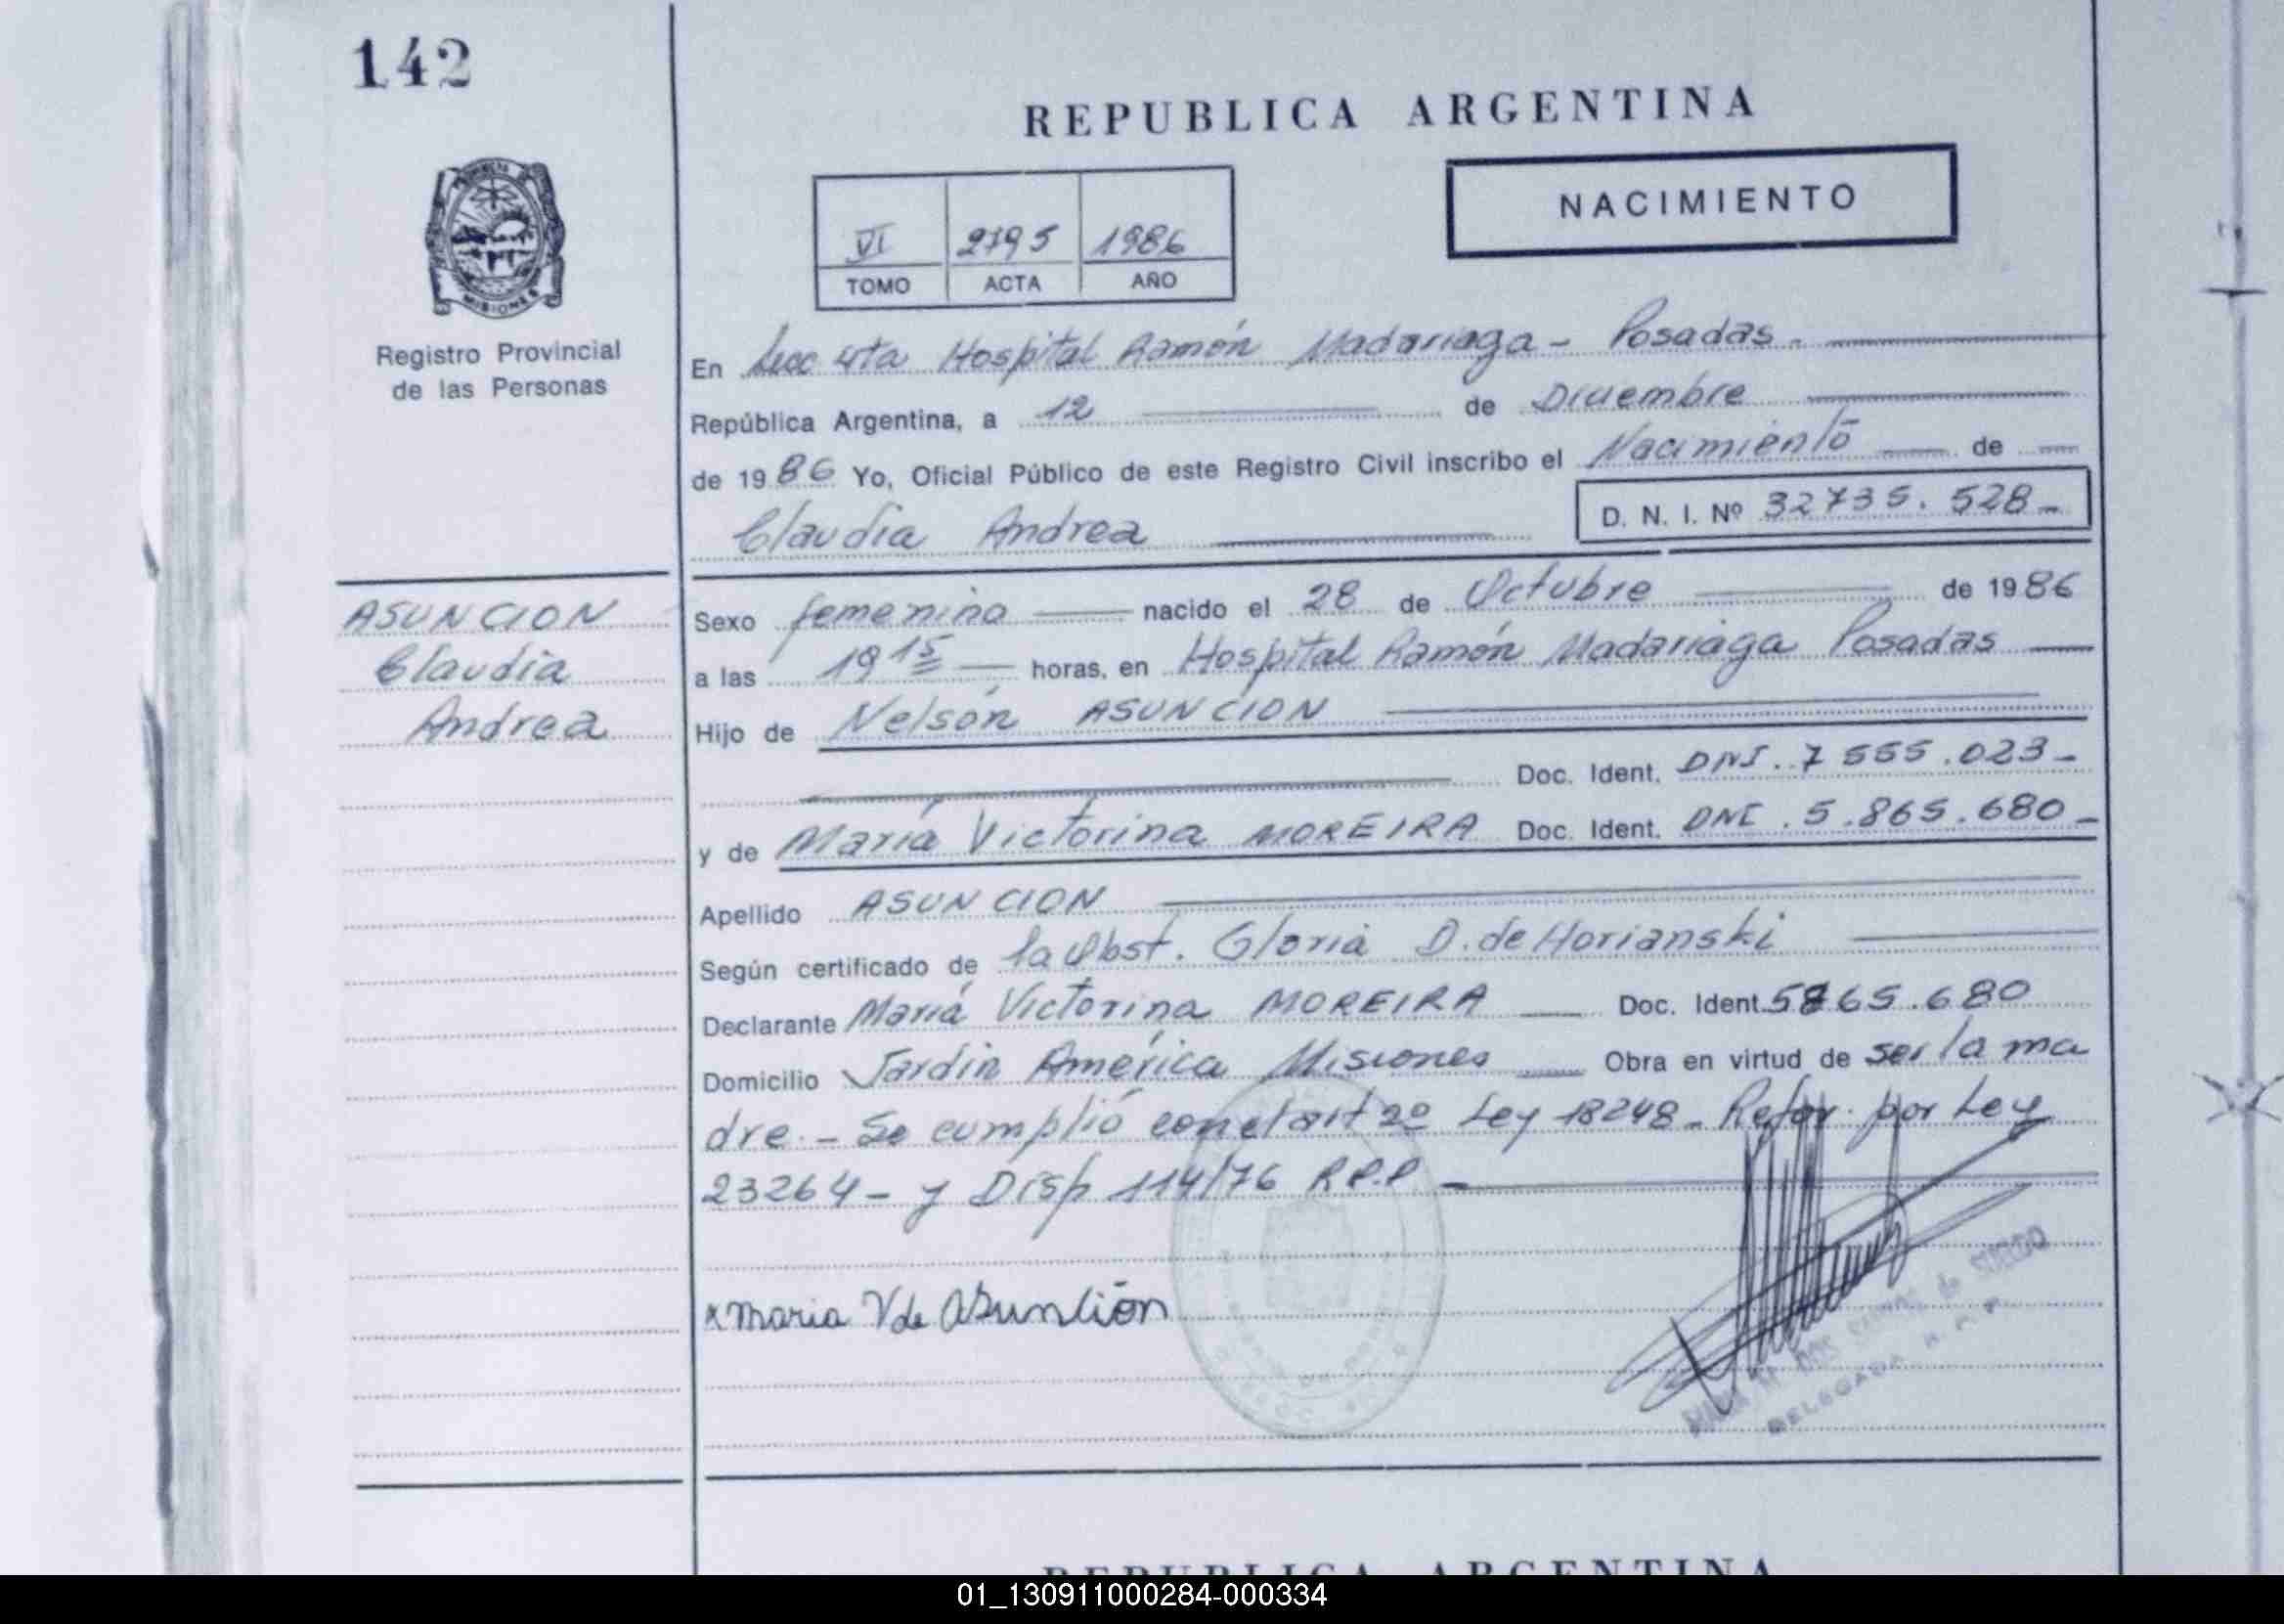 142
REPUBLICA ARGENTINA
NACIMIENTO
VI 2795 1986
TOMO ACTA AÑO
MISIONES
Registro Provincial
de las Personas
En Secc 4ta Hospital Ramón Madariaga - Posadas -
República Argentina, a 12 de Diciembre
de 1986 Yo, Oficial Público de este Registro Civil inscribo el Nacimiento de
Claudia Andrea D. N. I. Nº 32735.528-
ASUNCION
Claudia
Andrea
Sexo femenino nacido el 28 de Octubre de 1986
a las 19 15 horas, en Hospital Ramón Madariaga Posadas
Hijo de Nelsón ASUNCION
Doc. Ident. DNI. 7 555.023-
y de María Victorina MOREIRA Doc. Ident. DNI. 5.865.680-
Apellido ASUNCION
Según certificado de la Obst. Gloria D. de Horianski
Declarante María Victorina MOREIRA Doc. Ident. 5865.680
Domicilio Jardín América Misiones Obra en virtud de ser la ma
dre.- Se cumplió con el art 2º Ley 18248- Refor. por Ley
23264- y Disp 114/76 R.P.P -
x Maria V de Asunción
DELEGADA R. P. P.
REPUBLICA ARGENTINA
01_130911000284-000334